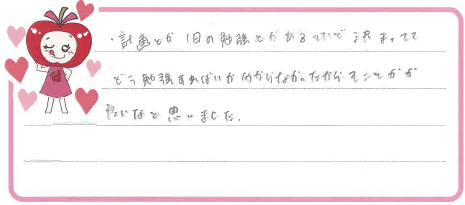 ・計画とか1日の勉強とかあるていど決まってて
どう勉強すればいいか分からなかったから
いいなと思いました。